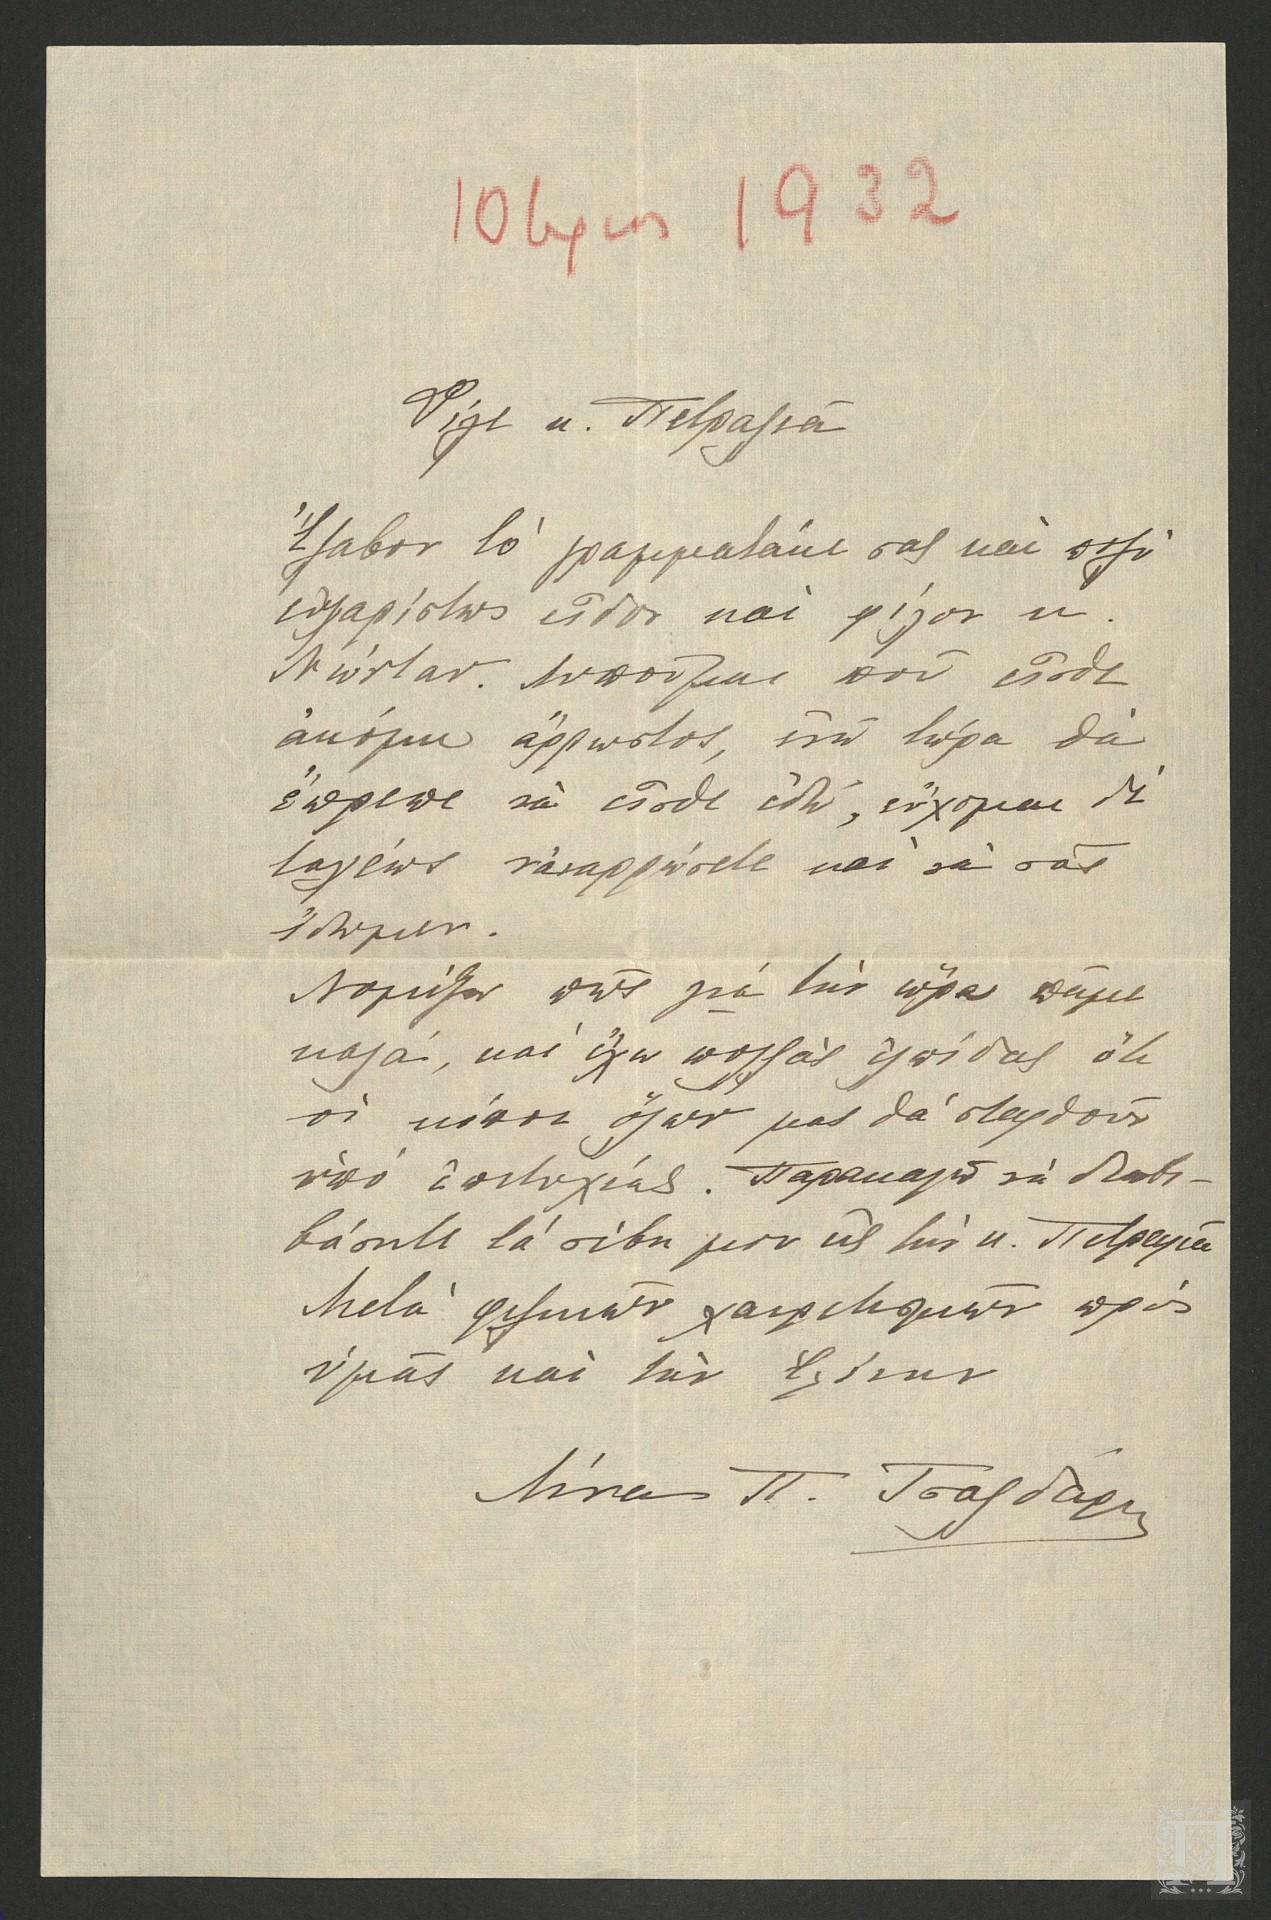 10βριος 1932
Φίλε κ. Πετραλιᾶ
Ἔλαβον τό γραμματάκι σας καί πολύ
εὐχαρίστως εἶδον καί φίλον κ.
Κώσταν. Λυποῦμαι ποῦ εἶσθε
ἀκόμη ἄρρωστος, ἐνῶ τώρα θὰ
ἔπρεπε νὰ εἶσθε ἐδῶ, εὔχομαι δέ
ταχέως νἀναρρώσετε καί νὰ σᾶς
ἴδωμεν.
Νομίζω πῶς γιά τὴν ὥρα πᾶμε
καλά, καί ἔχω πολλὰς ἐλπίδας ὅτι
οἱ κόποι ὅλων μας θά στεφθοῦν
ὑπό ἐπιτυχίας. Παρακαλῶ νὰ διαβι-
βάσητε τά σέβη μου εἰς τὴν κ. Πετραλιᾶ
Μετὰ φιλικῶν χαιρετισμῶν πρὸς
ὑμᾶς καὶ τὴν Ἑλένην
Λίνα Π. Τσαλδάρη